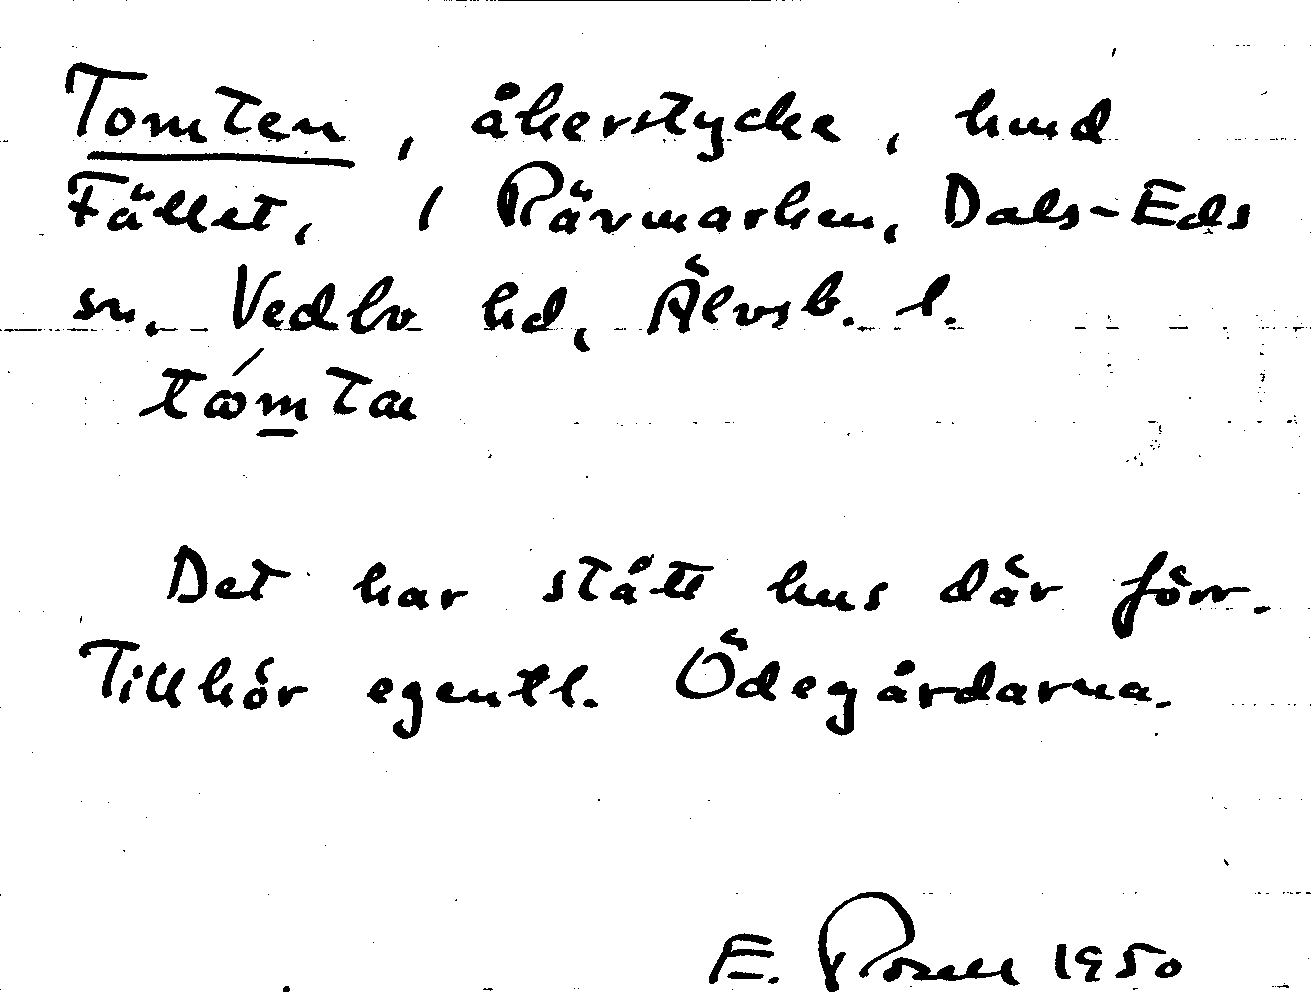 Tomten, åkerstycke, hmd
Fället, 1 Rävmarken, Dals-Eds
sn, Vedbo hd, Älvsb. l.
Det har stått hus där förr.
Tillhör egentl. Ödegårdarna.
E. Rosell 1950